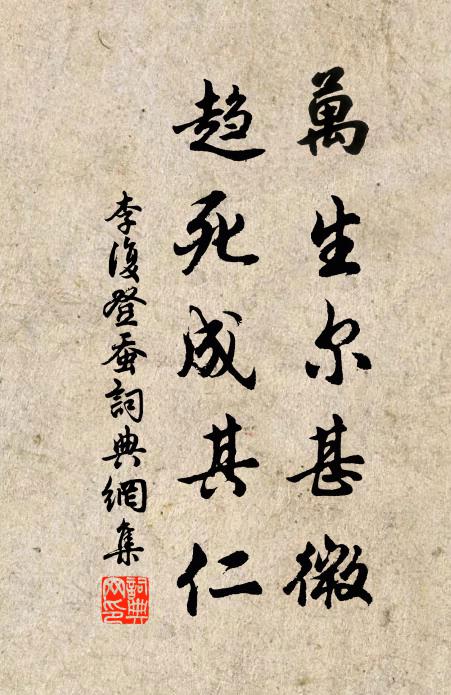 萬生尔甚微
趋死成其仁
李復登蚕詞典網集
詞典网印